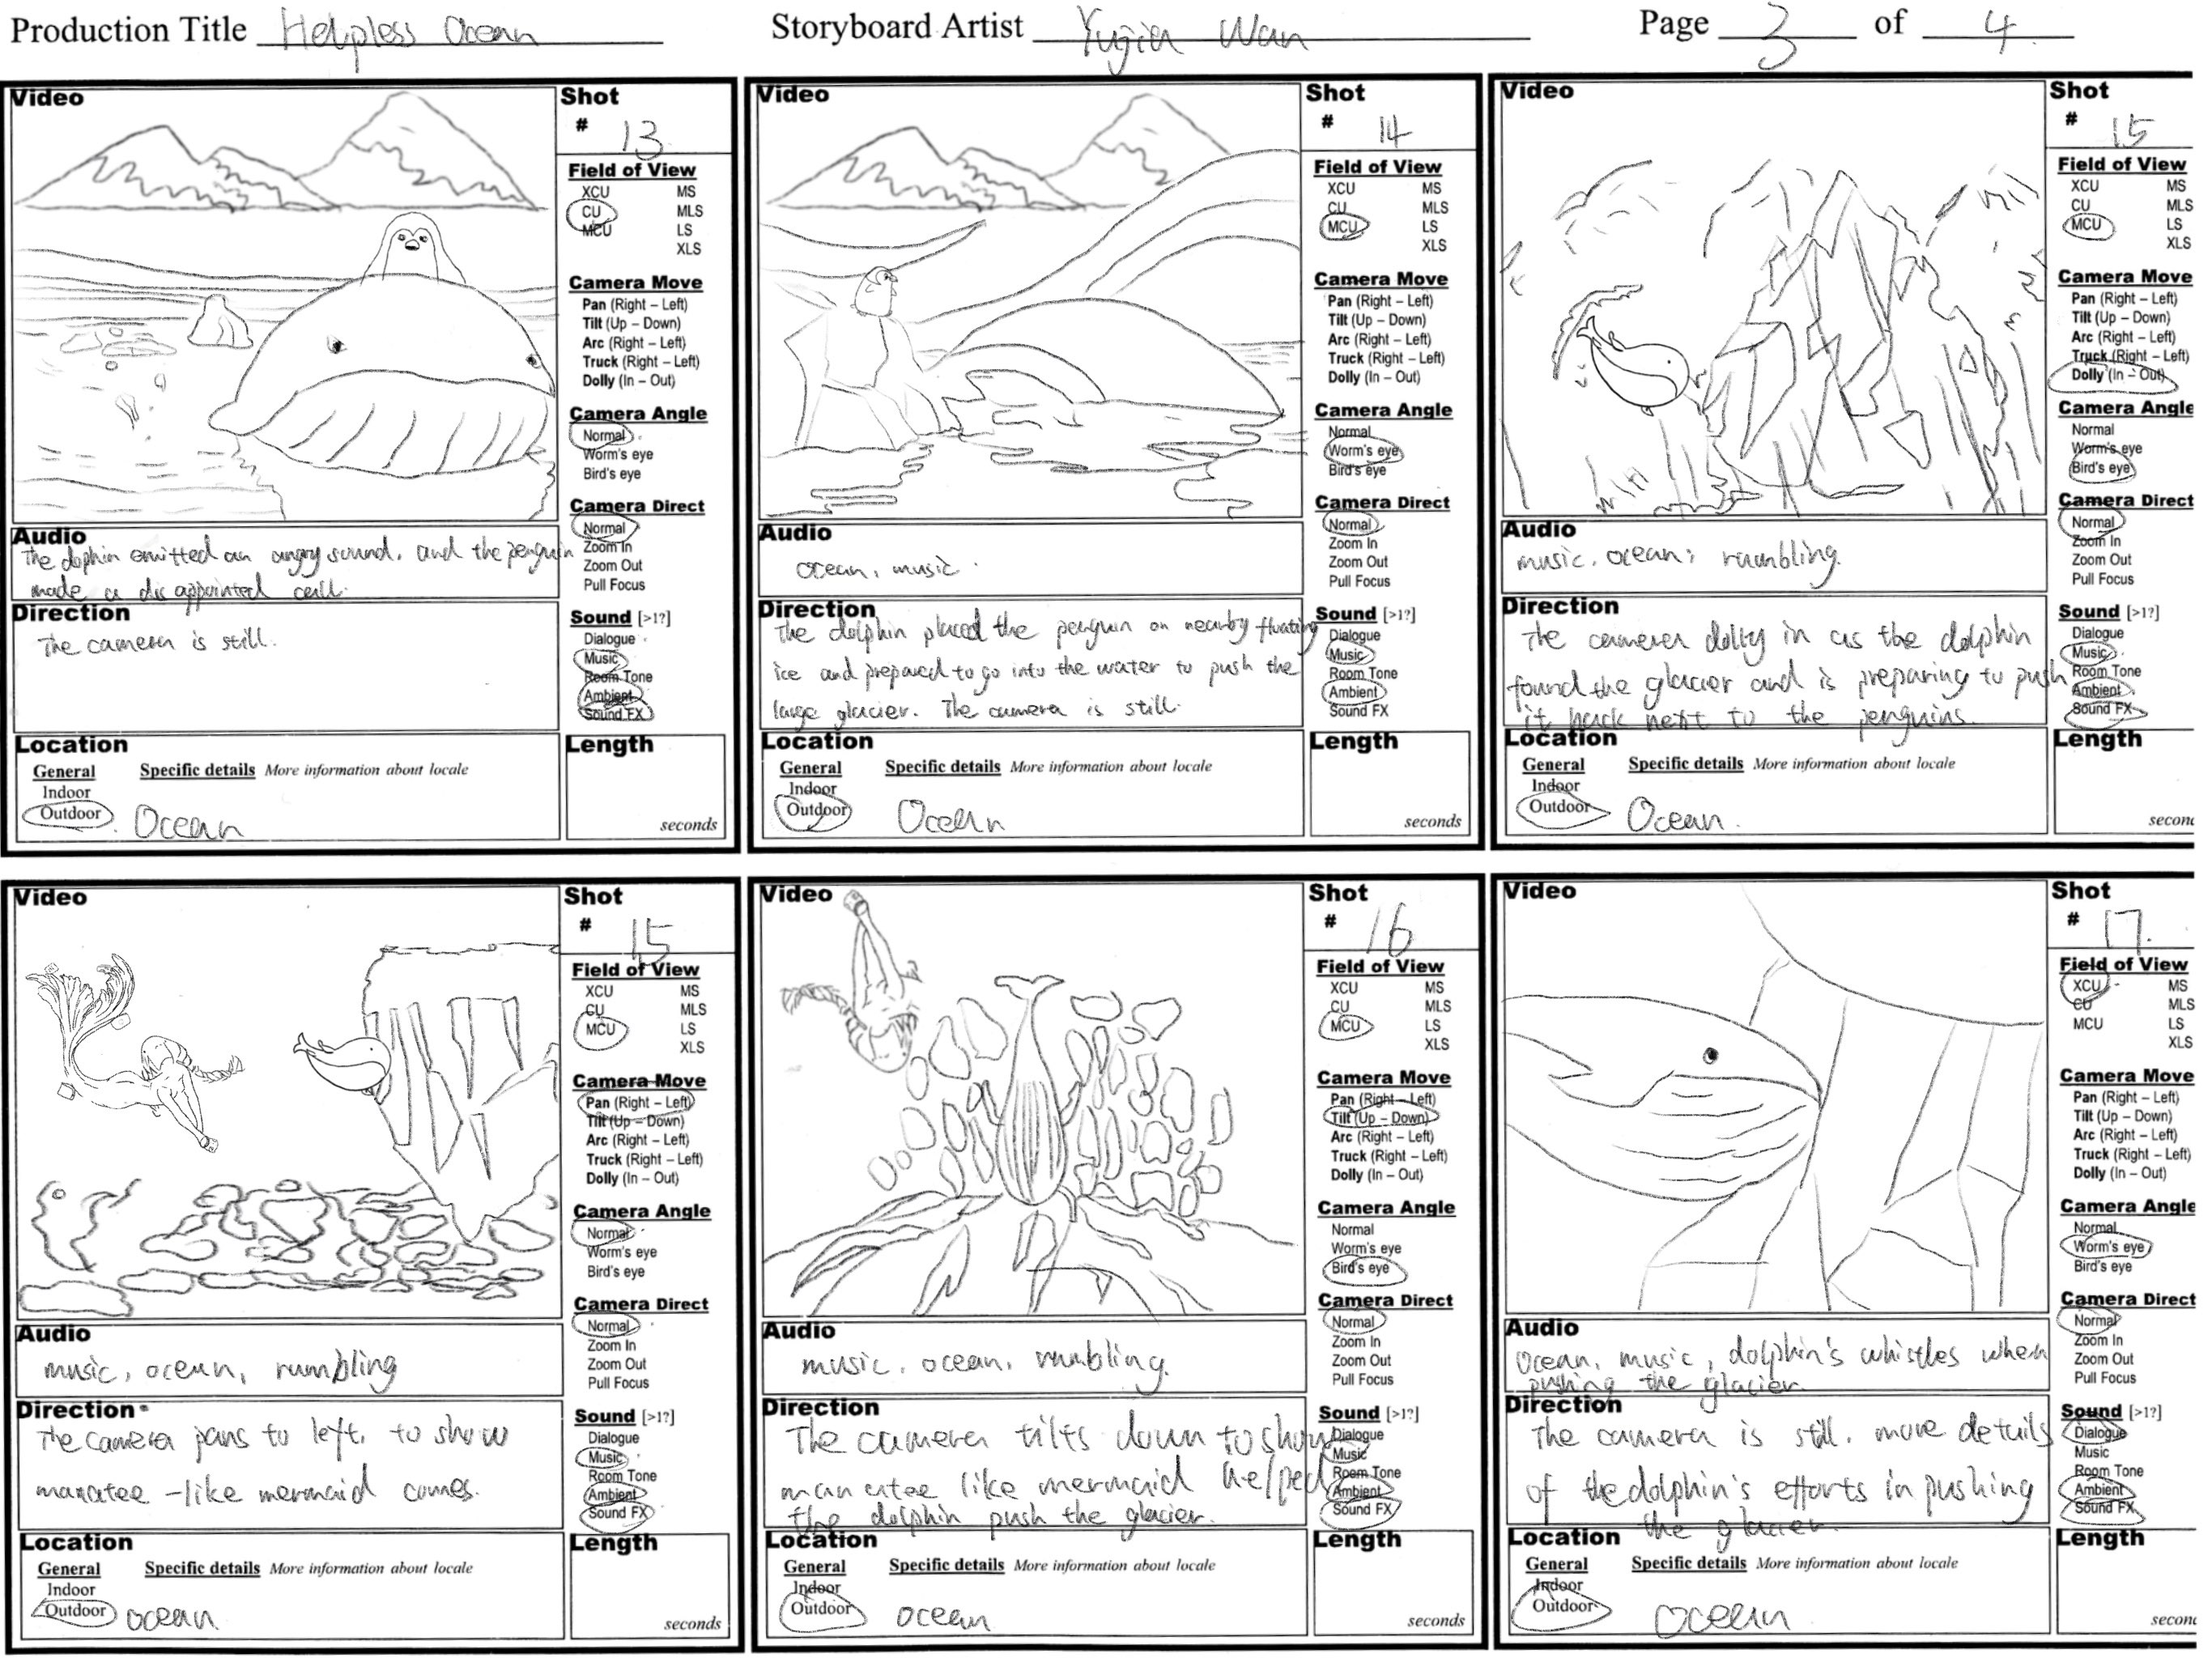 Production Title Helpless Ocean Storyboard Artist Yuqian Wan Page 3 of 4
Video
Shot
# 13
Field of View
XCU MS
CU MLS
MCU LS
XLS
Camera Move
Pan (Right – Left)
Tilt (Up – Down)
Arc (Right – Left)
Truck (Right – Left)
Dolly (In – Out)
Camera Angle
Normal
Worm's eye
Bird's eye
Camera Direct
Normal
Zoom In
Zoom Out
Pull Focus
Sound [>1?]
Dialogue
Music
Room Tone
Ambient
Sound FX
Audio
The dolphin emitted an angry sound, and the penguin
made a disappointed call.
Direction
The camera is still.
Location
General Specific details More information about locale
Indoor
Outdoor Ocean
Length
seconds
Video
Shot
# 14
Field of View
XCU MS
CU MLS
MCU LS
XLS
Camera Move
Pan (Right – Left)
Tilt (Up – Down)
Arc (Right – Left)
Truck (Right – Left)
Dolly (In – Out)
Camera Angle
Normal
Worm's eye
Bird's eye
Camera Direct
Normal
Zoom In
Zoom Out
Pull Focus
Sound [>1?]
Dialogue
Music
Room Tone
Ambient
Sound FX
Audio
ocean, music.
Direction
The dolphin placed the penguin on nearby floating
ice and prepared to go into the water to push the
large glacier. The camera is still.
Location
General Specific details More information about locale
Indoor
Outdoor Ocean
Length
seconds
Video
Shot
# 15
Field of View
XCU MS
CU MLS
MCU LS
XLS
Camera Move
Pan (Right – Left)
Tilt (Up – Down)
Arc (Right – Left)
Truck (Right – Left)
Dolly (In – Out)
Camera Angle
Normal
Worm's eye
Bird's eye
Camera Direct
Normal
Zoom In
Zoom Out
Pull Focus
Sound [>1?]
Dialogue
Music
Room Tone
Ambient
Sound FX
Audio
music, ocean, rumbling.
Direction
The camera dolly in as the dolphin
found the glacier and is preparing to push
it back next to the penguins.
Location
General Specific details More information about locale
Indoor
Outdoor Ocean.
Length
secon
Video
Shot
# 15
Field of View
XCU MS
CU MLS
MCU LS
XLS
Camera Move
Pan (Right – Left)
Tilt (Up – Down)
Arc (Right – Left)
Truck (Right – Left)
Dolly (In – Out)
Camera Angle
Normal
Worm's eye
Bird's eye
Camera Direct
Normal
Zoom In
Zoom Out
Pull Focus
Sound [>1?]
Dialogue
Music
Room Tone
Ambient
Sound FX
Audio
music, ocean, rumbling
Direction
The camera pans to left, to show
manatee-like mermaid comes.
Location
General Specific details More information about locale
Indoor
Outdoor ocean
Length
seconds
Video
Shot
# 16
Field of View
XCU MS
CU MLS
MCU LS
XLS
Camera Move
Pan (Right – Left)
Tilt (Up – Down)
Arc (Right – Left)
Truck (Right – Left)
Dolly (In – Out)
Camera Angle
Normal
Worm's eye
Bird's eye
Camera Direct
Normal
Zoom In
Zoom Out
Pull Focus
Sound [>1?]
Dialogue
Music
Room Tone
Ambient
Sound FX
Audio
music, ocean, rumbling.
Direction
The camera tilts down to show
manatee like mermaid helped
the dolphin push the glacier.
Location
General Specific details More information about locale
Indoor
Outdoor ocean
Length
seconds
Video
Shot
# 17.
Field of View
XCU MS
CU MLS
MCU LS
XLS
Camera Move
Pan (Right – Left)
Tilt (Up – Down)
Arc (Right – Left)
Truck (Right – Left)
Dolly (In – Out)
Camera Angle
Normal
Worm's eye
Bird's eye
Camera Direct
Normal
Zoom In
Zoom Out
Pull Focus
Sound [>1?]
Dialogue
Music
Room Tone
Ambient
Sound FX
Audio
Ocean, music, dolphin's whistles when
pushing the glacier.
Direction
The camera is still. more details
of the dolphin's efforts in pushing
the glacier.
Location
General Specific details More information about locale
Indoor
Outdoor ocean
Length
secon